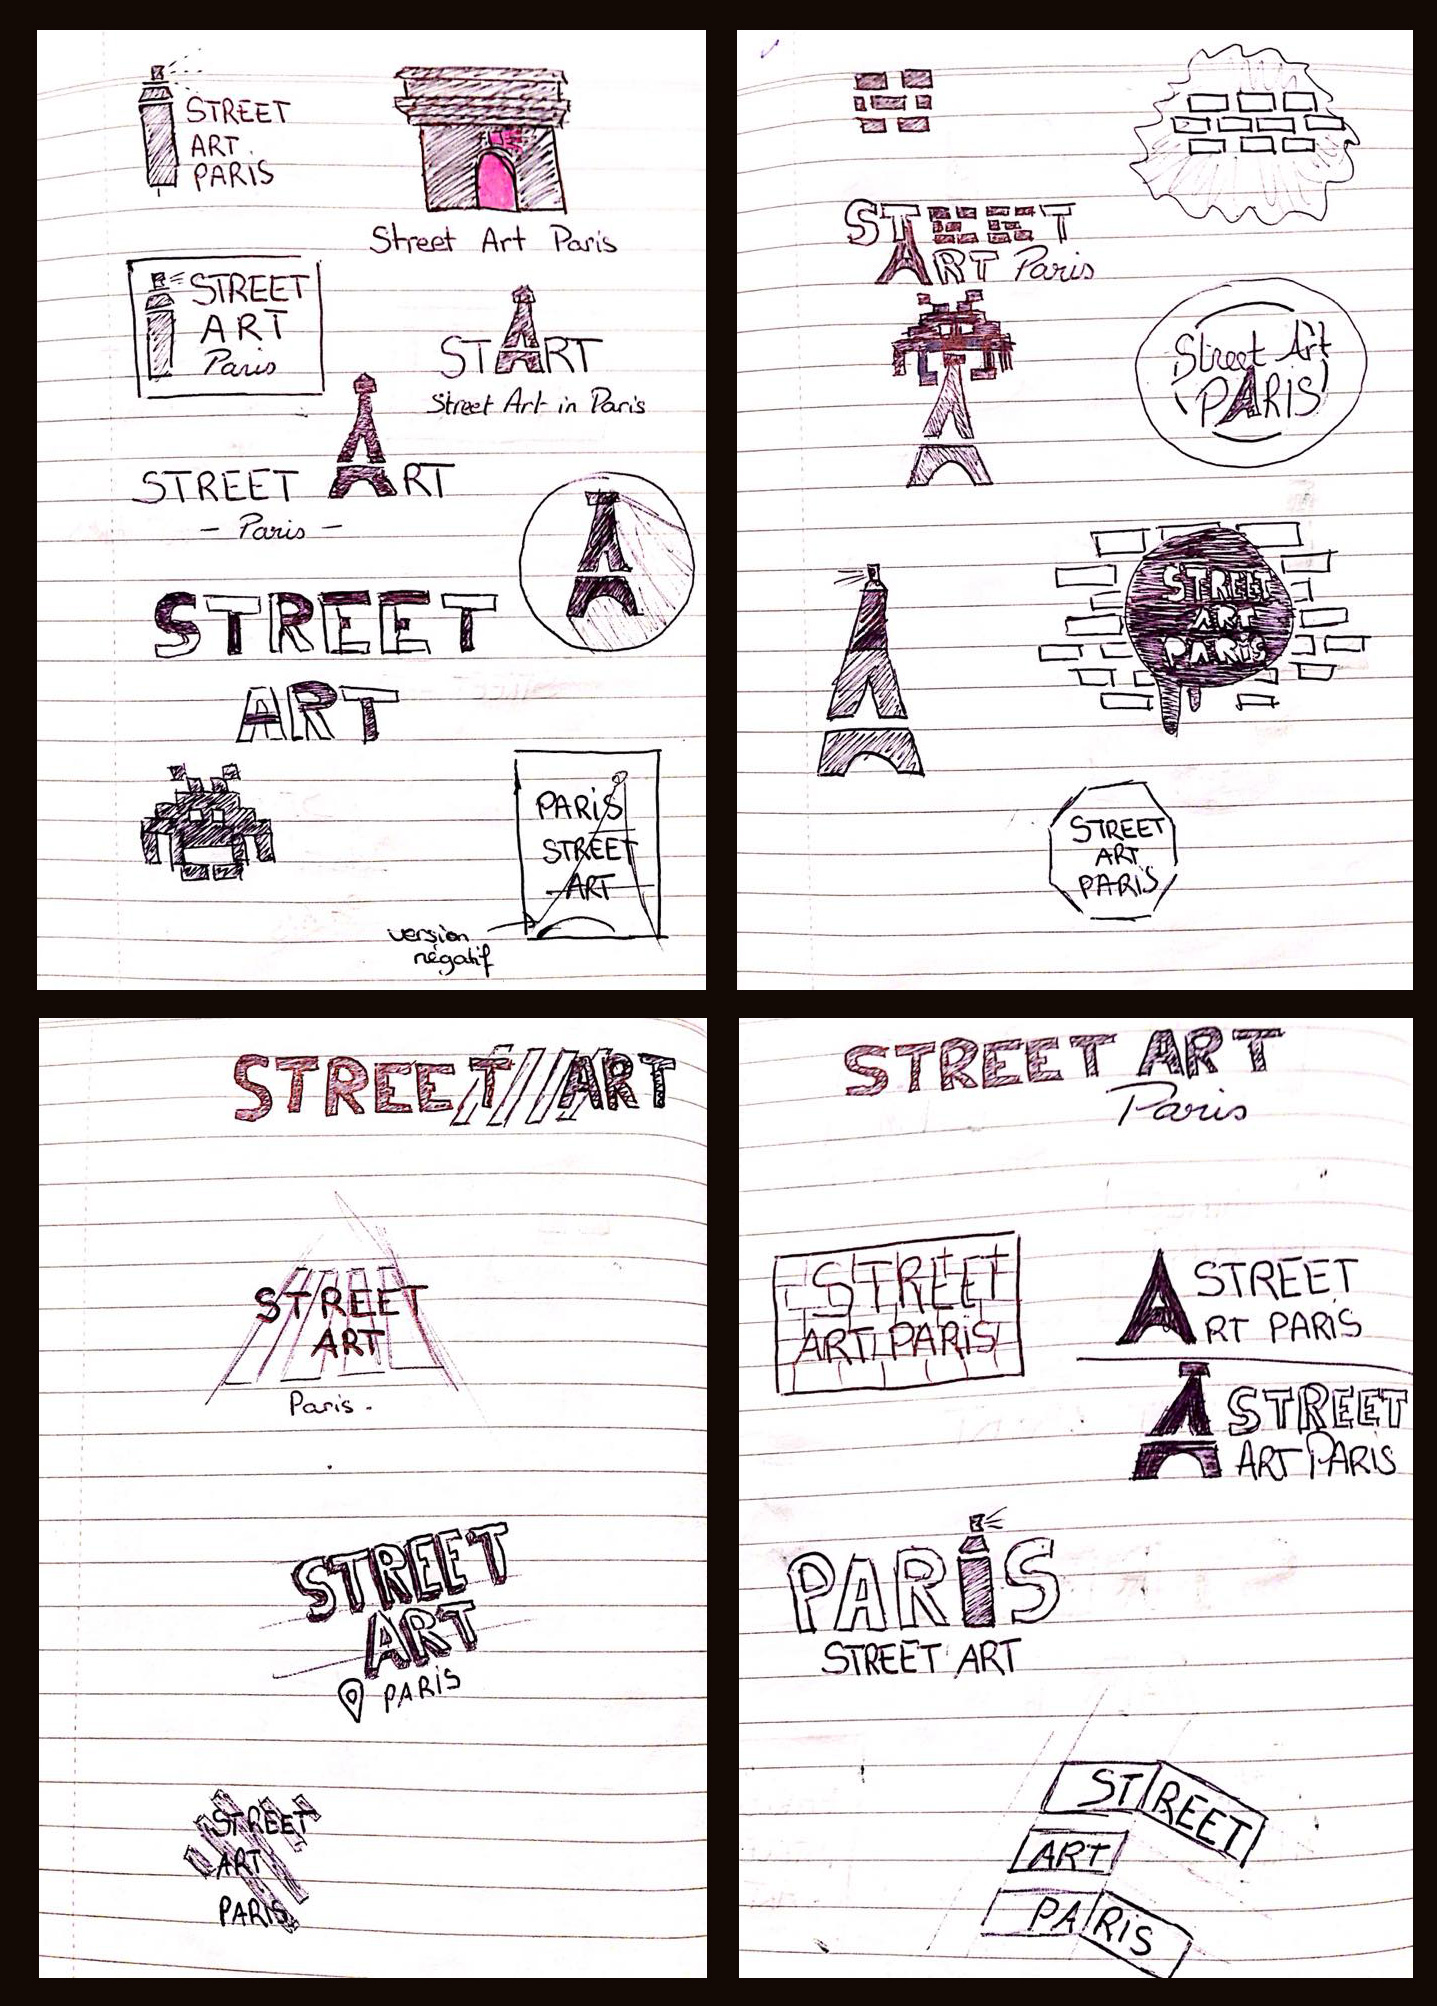 STREET
ART
PARIS
Street Art Paris
STREET
ART
Paris
START
Street Art in Paris
STREET ART
- Paris -
A
STREET
ART
PARIS
STREET
ART
version
négatif
STREET
ART Paris
Street Art
PARIS
STREET
ART
PARIS
STREET
ART
PARIS
STREET ART
STREET
ART
Paris.
STREET
ART
PARIS
STREET
ART
PARIS
STREET ART
Paris
STREET
ART PARIS
A STREET
RT PARIS
A STREET
ART PARIS
PARIS
STREET ART
STREET
ART
PARIS